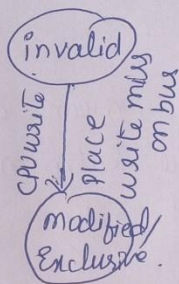 invalid
CPU write
Place
write miss
on bus
modified/
Exclusive.